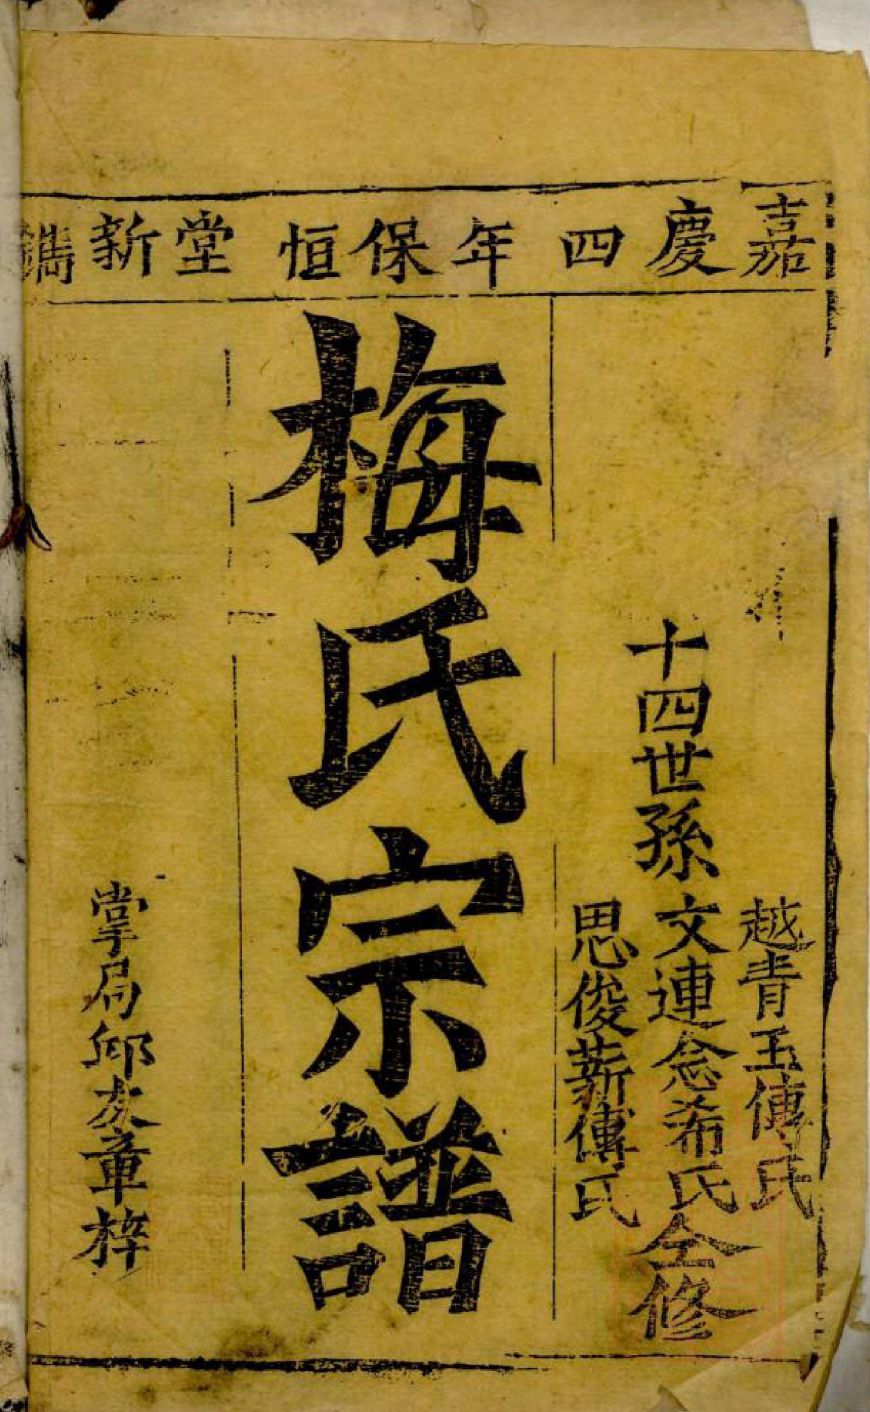 嘉慶四年保恒堂新鐫
十四世孫
越青玉傳氏
文連念希氏
思俊薪傳氏
仝修
梅氏宗譜
掌局邱友章梓